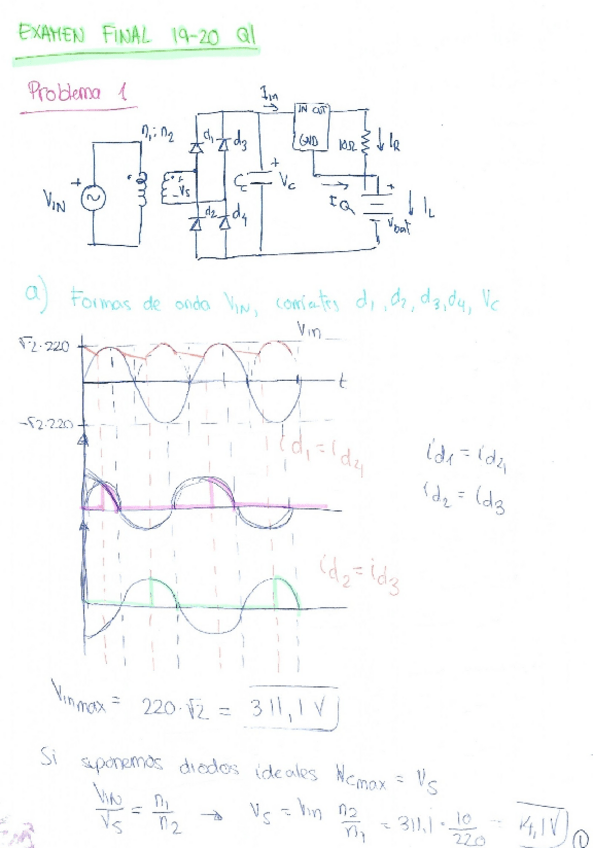 EXAMEN FINAL 19-20 Q1
Problema 1
n1:n2
VIN
+
Vs
-
d1
d3
d2
d4
Iin
IN OUT
GND
C
+
Vc
10Ω
IR
IQ
+
Vbat
IL
a) Formas de onda VIN, corrientes d1, d2, d3, d4, Vc
Vin
√2·220
t
-√2·220
id1 = id4
id1 = id4
id2 = id3
id2 = id3
Vinmax = 220·√2 = 311,1 V
Si suponemos diodos ideales Vcmax = Vs
VIN/Vs = n1/n2 → Vs = Vin n2/n1 = 311,1 · 10/220 = 14,1 V
1